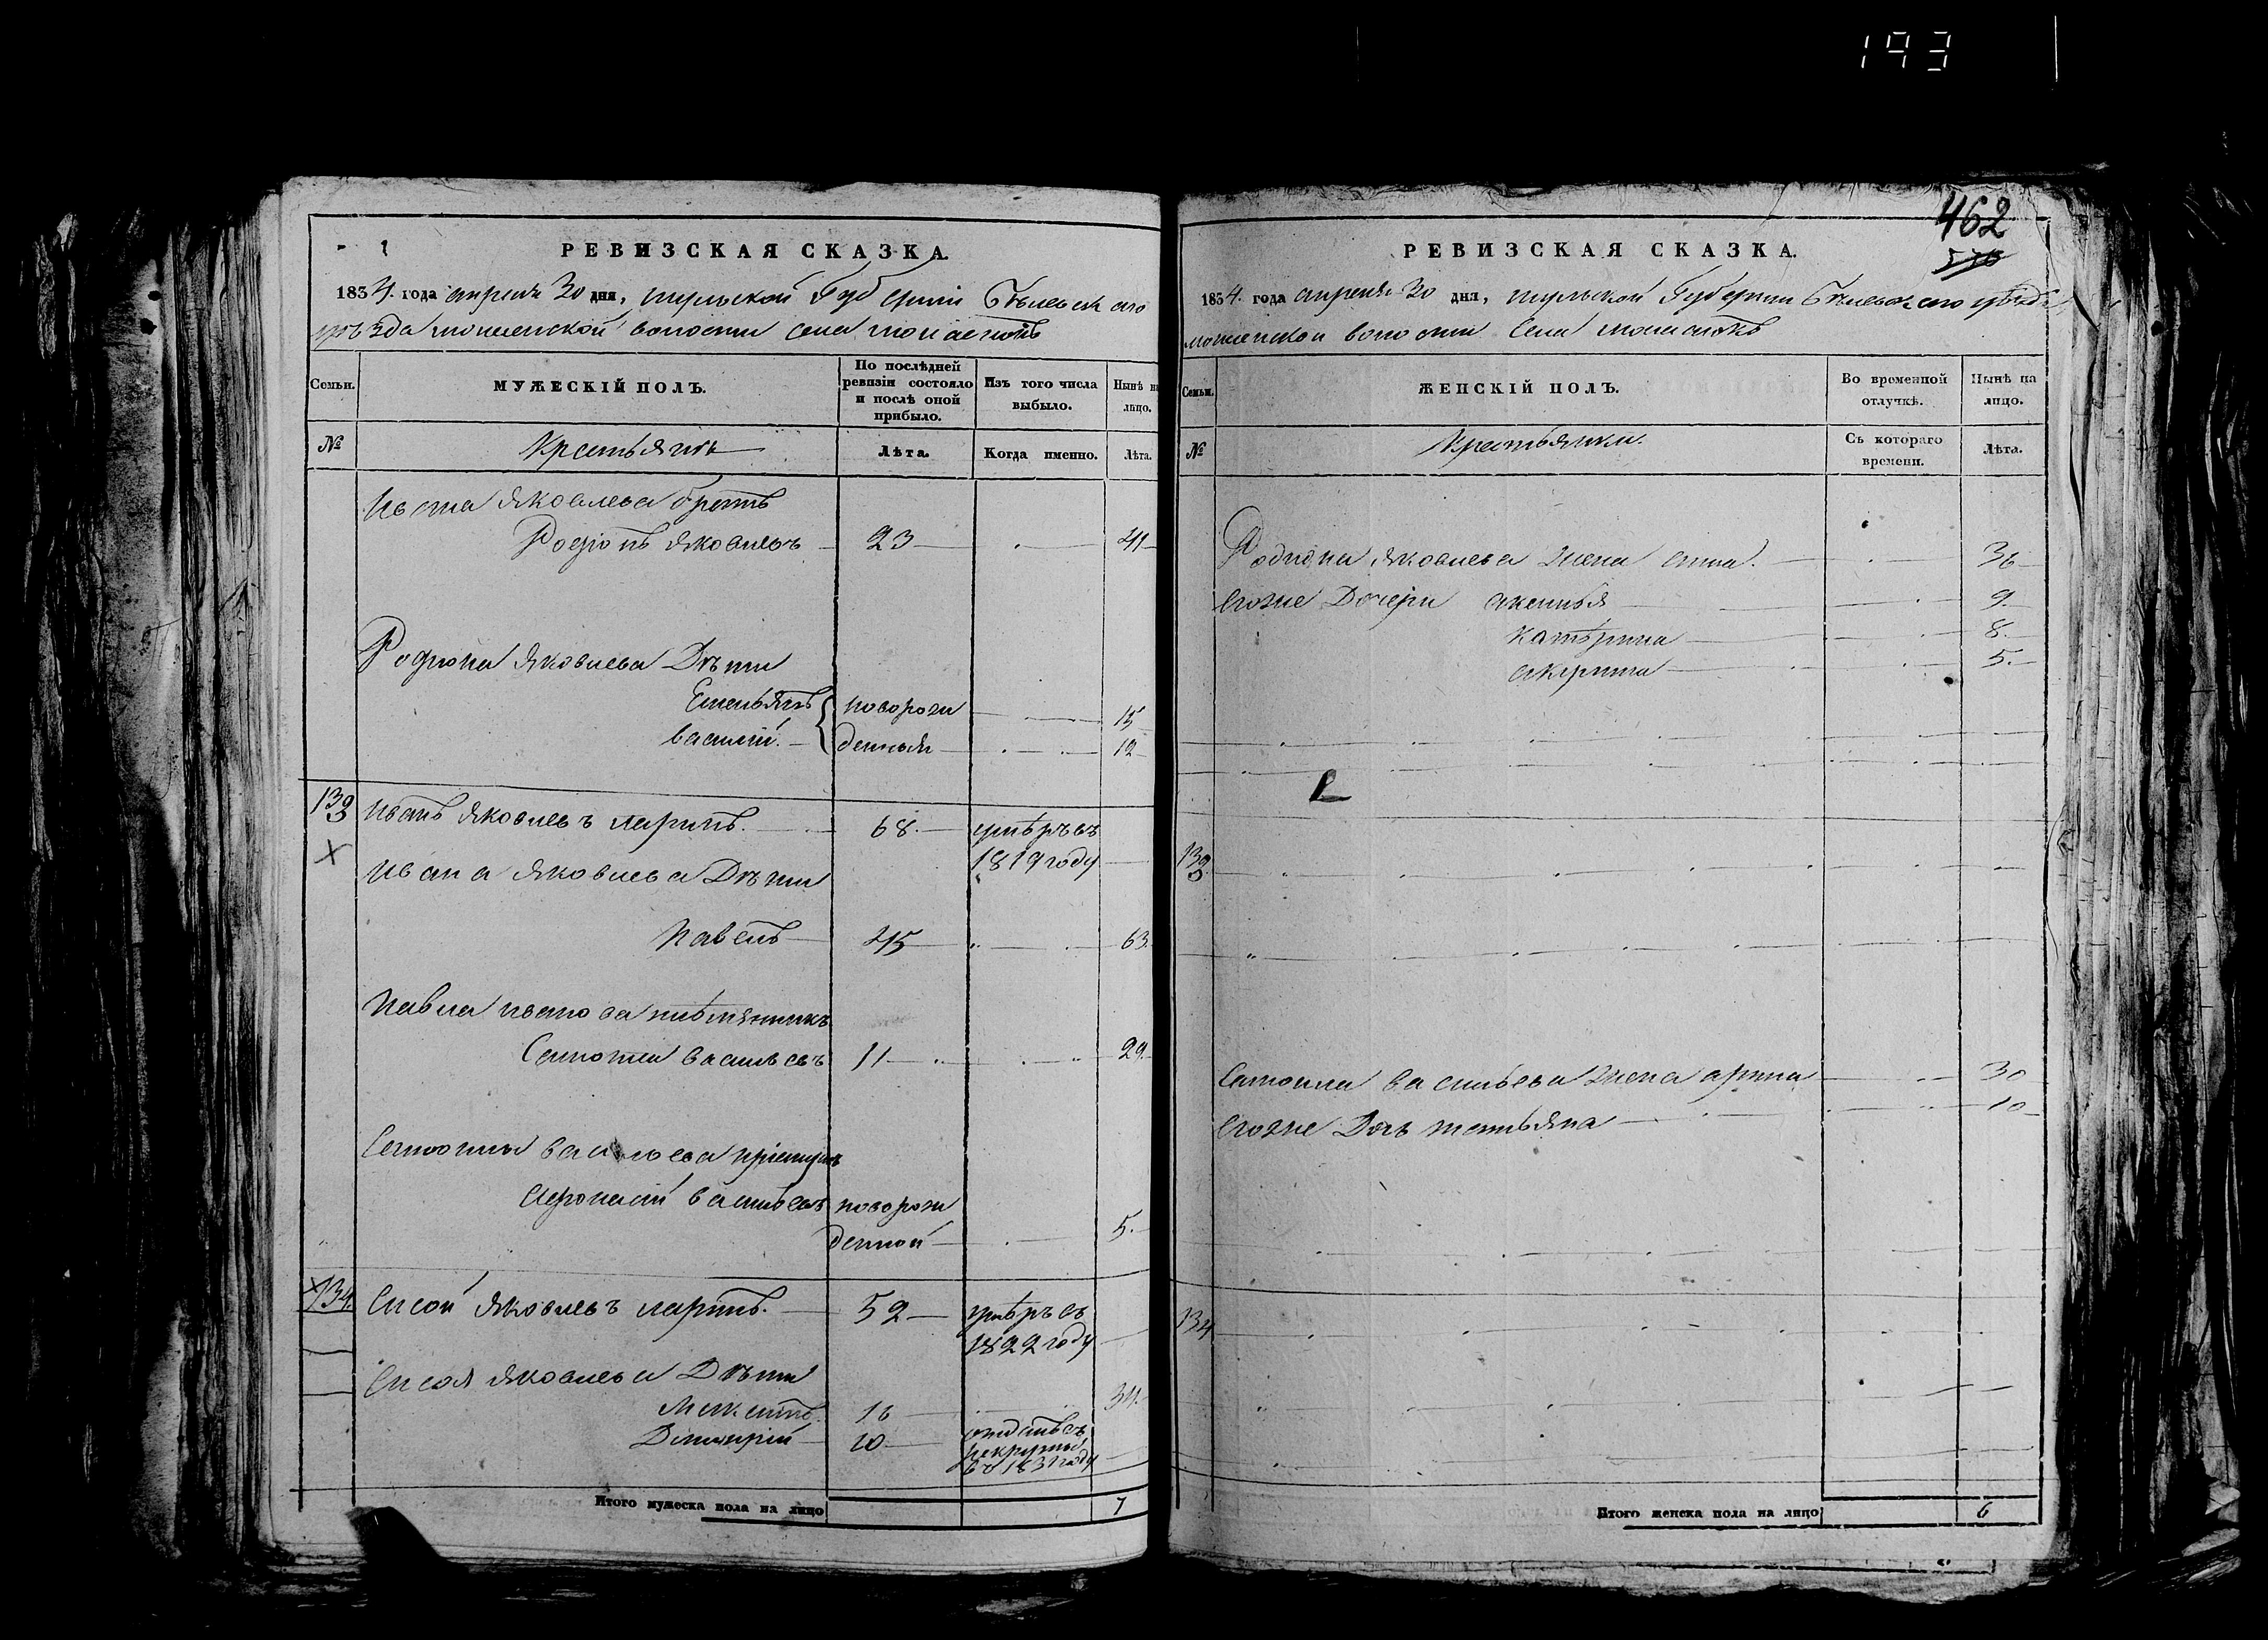 193
462
РЕВИЗСКАЯ СКАЗКА.
1834. года апреля 30 дня, тульской Губернии Бѣлевскаго
уѣзда волости села
Семьи.
МУЖЕСКІЙ ПОЛЪ.
По послѣдней ревизіи состояло и послѣ оной прибыло.
Изъ того числа выбыло.
Нынѣ на лицо.
№
Крестьянѣ
Лѣта.
Когда именно.
Лѣта.
Ивана Яковлева братъ
Родіонъ Яковлевъ 23 41
Родиона Яковлева Дѣти
Емельянъ новорож 15
василій денныя 12
133 Иванъ Яковлевъ ларинъ. 68 умѣръ въ
1819 году
Ивана Яковлева Дѣти
Павелъ 45 63
Павла иванова племянникъ
Самоила васильевъ 11 29
Самоилы васильева
васильевъ новорож
денной 5
134. Сысой Яковлевъ ларинъ. 52 умѣръ въ
1822 году
Сысоя Яковлева Дѣти
16 34
Дмитрій 10 отданъ въ
рекруты
въ году
Итого мужеска пола на лицо 7
РЕВИЗСКАЯ СКАЗКА.
1834. года апреля 30 дня, тульской Губернии Бѣлевскаго уѣзда
волости Села
Семьи.
ЖЕНСКІЙ ПОЛЪ.
Во временной отлучкѣ.
Нынѣ на лицо.
№
Крестьянки.
Съ котораго времени.
Лѣта.
Родиона Яковлева Жена анна. 36
Егоже Дочери аксинья 9
катѣрина 8
акулина 5
133
Самоила васильева Жена арина 30
Егоже Дочь татьяна 10
134
Итого женска пола на лицо 6